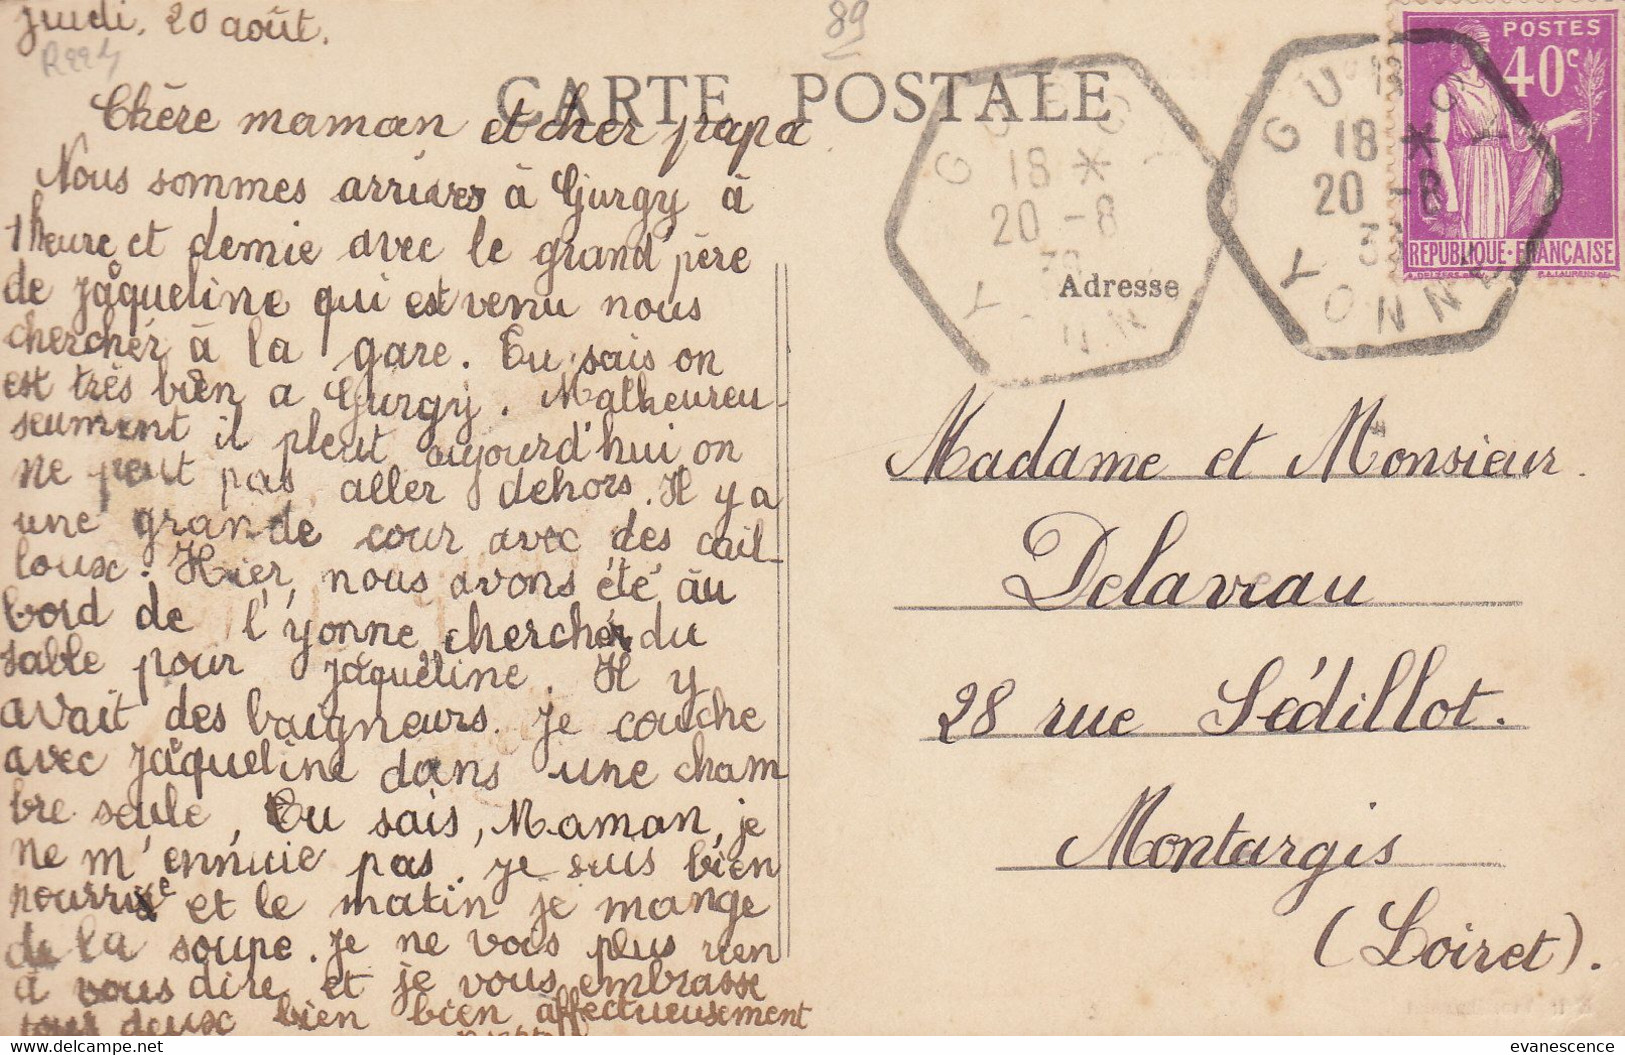 Jeudi, 20 août.
89
CARTE POSTALE
Chère maman et cher papa
Nous sommes arrivés à Gurgy à
1 heure et demie avec le grand'père
de Jaqueline qui est venu nous
cherchér à la gare. Tu sais on
est très bien a Gurgy. Malheureu-
seument il pleut aujourd'hui on
ne peut pas aller dehors. Il y a
une grande cour avec des cail-
loux. Hier, nous avons été au
bord de l'yonne cherchér du
sable pour Jaqueline. Il y
avait des baigneurs. Je couche
avec Jaqueline dans une cham
bre seule, Tu sais, Maman, je
ne m'ennuie pas. Je suis bien
nourrie et le matin je mange
de la soupe. Je ne vois plus rien
à vous dire et je vous embrasse
tous deux bien bien affectueusement
GURGY
18 *
20 - 8
YONNE
GURGY
18 *
20 - 8
3
YONNE
POSTES
40c
REPUBLIQUE-FRANÇAISE
Adresse
Madame et Monsieur.
Delaveau
28 rue Sédillot.
Montargis
(Loiret).
evanescence